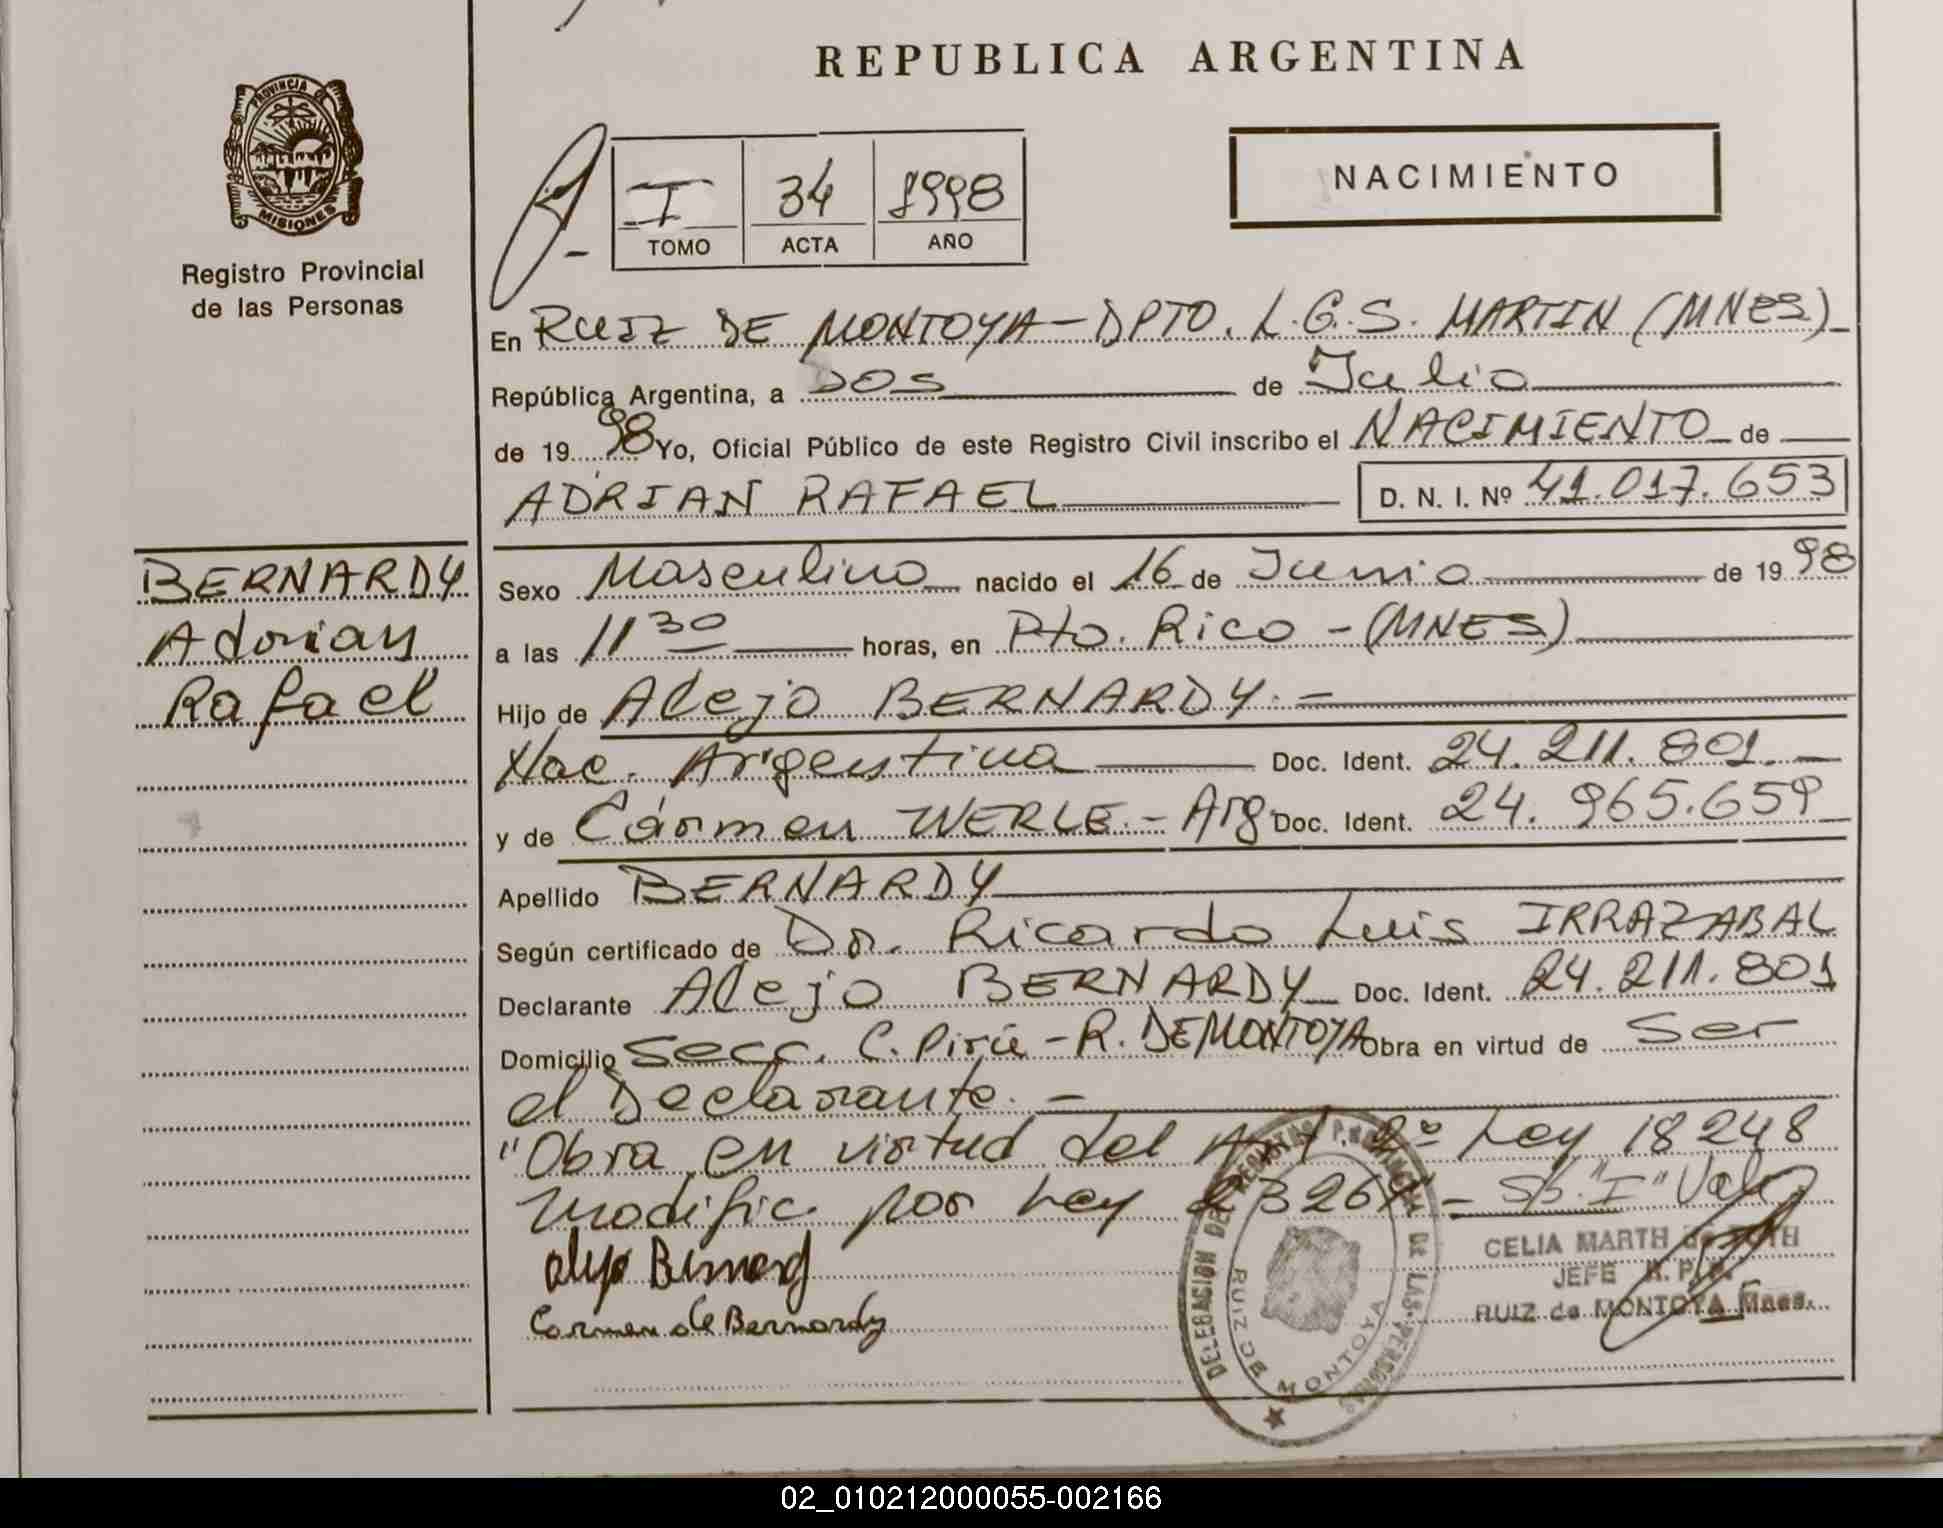 REPUBLICA ARGENTINA
PROVINCIA DE
MISIONES
Registro Provincial
de las Personas
I 34 1998
TOMO ACTA AÑO
NACIMIENTO
En RUIZ DE MONTOYA-DPTO. L.G.S. MARTIN (MNES)
República Argentina, a DOS de Julio
de 19 98 Yo, Oficial Público de este Registro Civil inscribo el NACIMIENTO de
ADRIAN RAFAEL D. N. I. Nº 41.017.653
BERNARDY
Adrian
Rafael
Sexo Masculino nacido el 16 de Junio de 19 98
a las 11 30 horas, en Pto. Rico - (MNES)
Hijo de Alejo BERNARDY.-
Nac. Argentina Doc. Ident. 24.211.801.-
y de Cármen WERLE.- Arg Doc. Ident. 24.965.659
Apellido BERNARDY
Según certificado de Dr. Ricardo Luis IRRAZABAL
Declarante Alejo BERNARDY Doc. Ident. 24.211.801
Domicilio Secc. C. Pirú - R. DE MONTOYA Obra en virtud de Ser
el Declarante.-
"Obra en virtud del Art. 2º Ley 18248
modific. por Ley 23264"- S/b. "I" Vale
CELIA MARTH de
JEFE R. P. P.
RUIZ de MONTOYA Mnes.
Alejo Bernardy
Carmen de Bernardy
DELEGACION DEL REGISTRO PROVINCIAL DE LAS PERSONAS
RUIZ DE MONTOYA
02_010212000055-002166